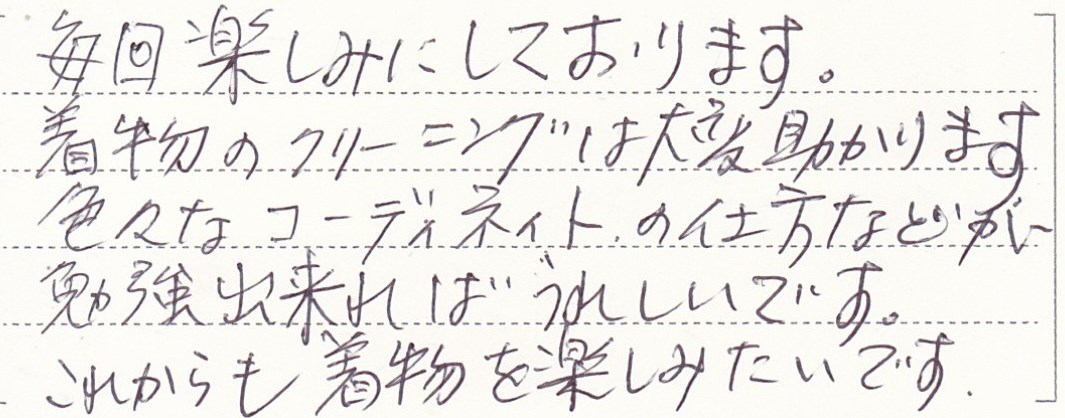 毎回楽しみにしております。
着物のクリーニングは大変助かります
色々なコーディネイト.の仕方などが
勉強出来ればうれしいです。
これからも着物を楽しみたいです.